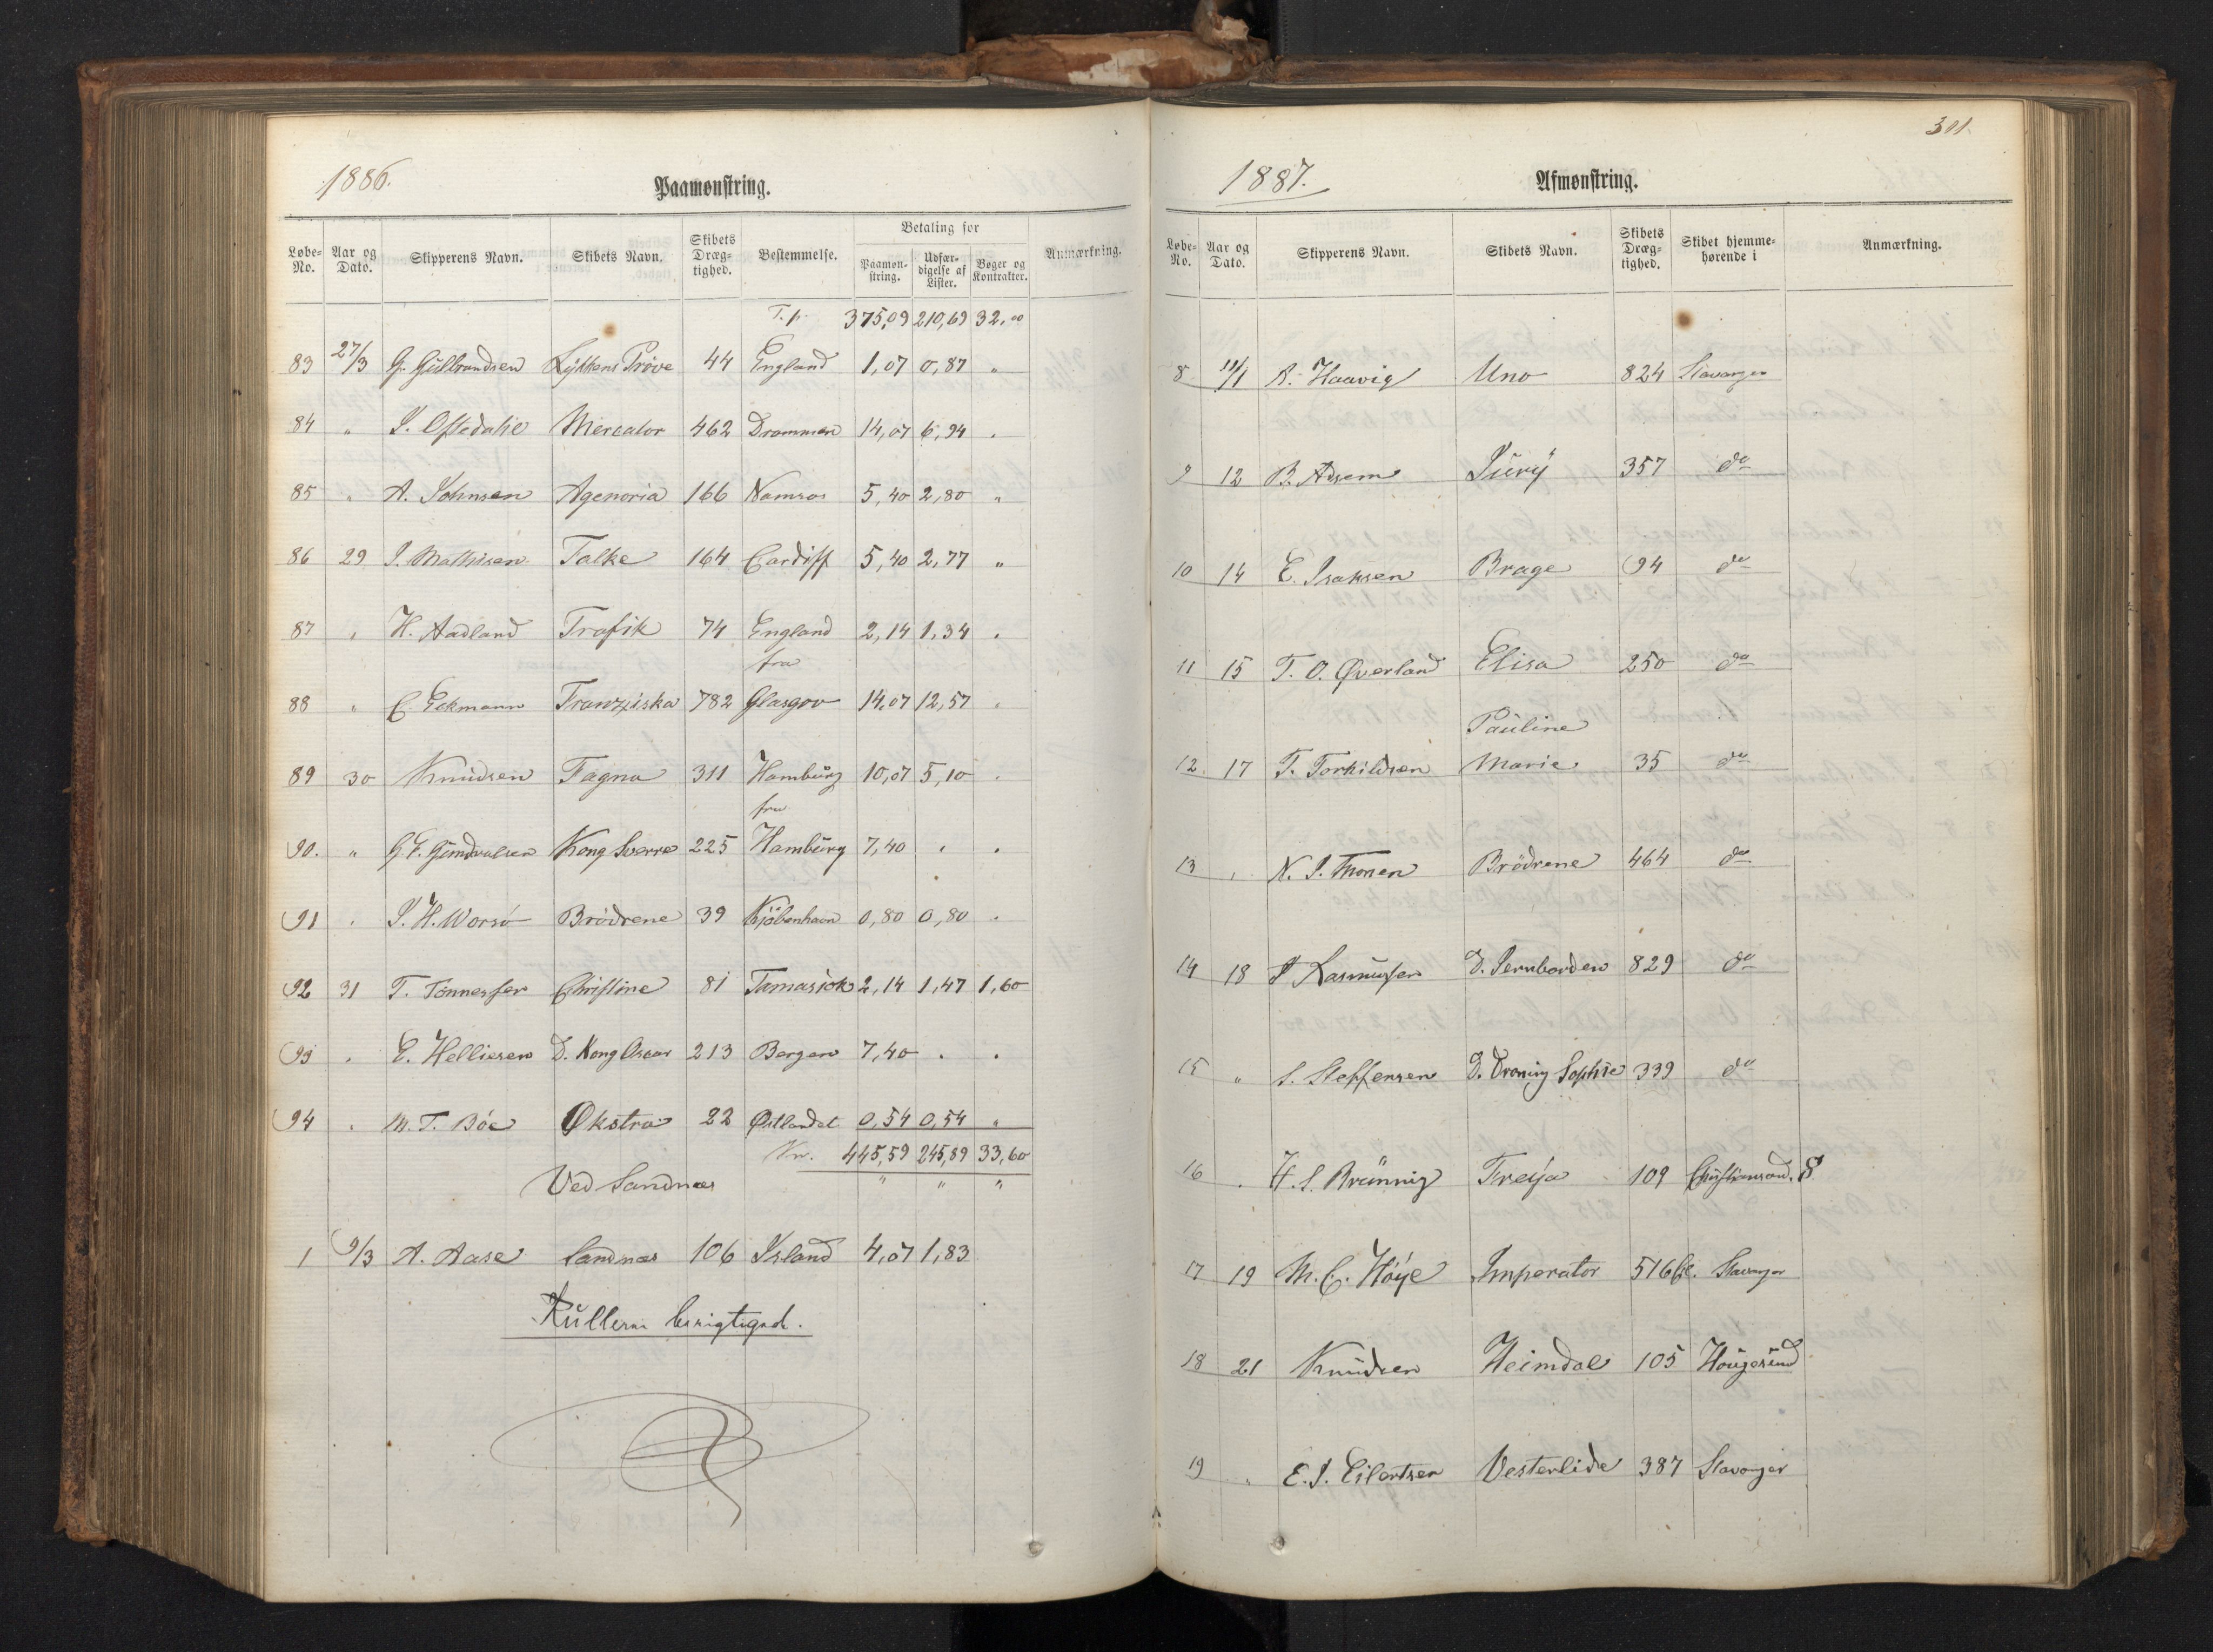 1886.
Paamønstring.
Løbe-No. Aar og Dato. Skipperens Navn. Skibets Navn. Skibets Dræg-tighed. Bestemmelse. Betaling for Paamøn-string. Udfær-digelse af Lister. Bøger og Kontrakter. Anmærkning.
T. p. 375,09 210,69 32,00
83 27/3 G. Gulbrandsen Lykkens Prøve 44 England 1,07 0,87 "
84 " J. Oftedahl Mercator 462 Drammen 14,07 6,94 "
85 " A. Johnsen Agenoria 166 Namsos 5,40 2,80 "
86 29 J. Mathisen Falke 164 Cardiff 5,40 2,77 "
87 " H. Aadland Trafik 74 England 2,14 1,34 "
fra
88 " C. Eckmann Franziska 782 Glasgow 14,07 12,57 "
89 30 Knudsen Fagna 311 Hamburg 10,07 5,10 "
fra
90. " G. F. Gundvalsen Kong Sverre 225 Hamburg 7,40 " "
91 " J. H. Worsö Brödrene 39 Kjöbenhavn 0,80 0,80 "
92 31 T. Tönnessen Christine 81 2,14 1,47 1,60
93 " E. Helliesen D. Kong Oscar 213 Bergen 7,40 " "
94 " M. T. Böe Økstra 22 Østlandet 0,54 0,54 "
Kr. 445,59 245,89 33,60
Ved Sandnæs " " "
1 9/3 A. Aase Sandnæs 106 Island 4,07 1,83
Rullerne berigtiged.
301.
1887.
Afmønstring.
Løbe-No. Aar og Dato. Skipperens Navn. Skibets Navn. Skibets Dræg-tighed. Skibet hjemme-hørende i Anmærkning.
8 11/1 A. Haavig Uno 824 Stavanger
9 12 B. Adsem Jury 357 do
10 14 E. Isaksen Brage 94 do
11 15 T. O. Øverland Elisa 250 do
Pauline
12 17 T. Torkildsen Marie 35 do
13 " N. J. Thorsen Brödrene 464 do
14 18 J Rasmussen D. Jernbarden 829 do
15 " S. Steffensen D. Droning Sophie 339 do
16 " H. S. Brünnig Freija 109 Christiansand. S
17 19 M. C. Höye Imperator 516 Stavanger
18 21 Knudsen Heimdal 105 Hougesund
19 " E. J. Eilertsen Vesterlide 387 Stavanger